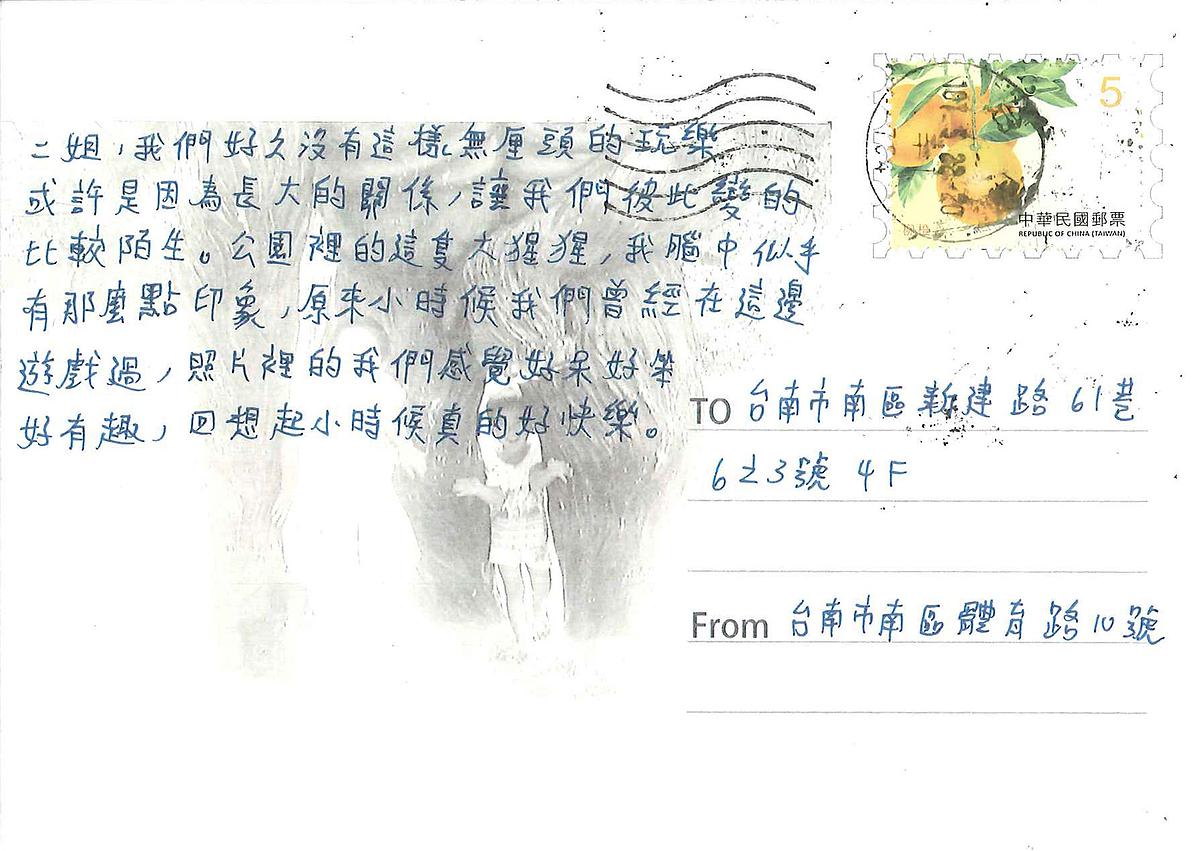 二姐，我們好久沒有這樣無厘頭的玩樂
或許是因為長大的關係，讓我們彼此變的
比較陌生。公園裡的這隻大猩猩，我腦中似乎
有那麼點印象，原來小時候我們曾經在這邊
遊戲過，照片裡的我們感覺好呆好笨
好有趣，回想起小時候真的好快樂。
5
中華民國郵票
REPUBLIC OF CHINA (TAIWAN)
TO 台南市南區新建路61巷
6之3號 4F
From 台南市南區體育路10號